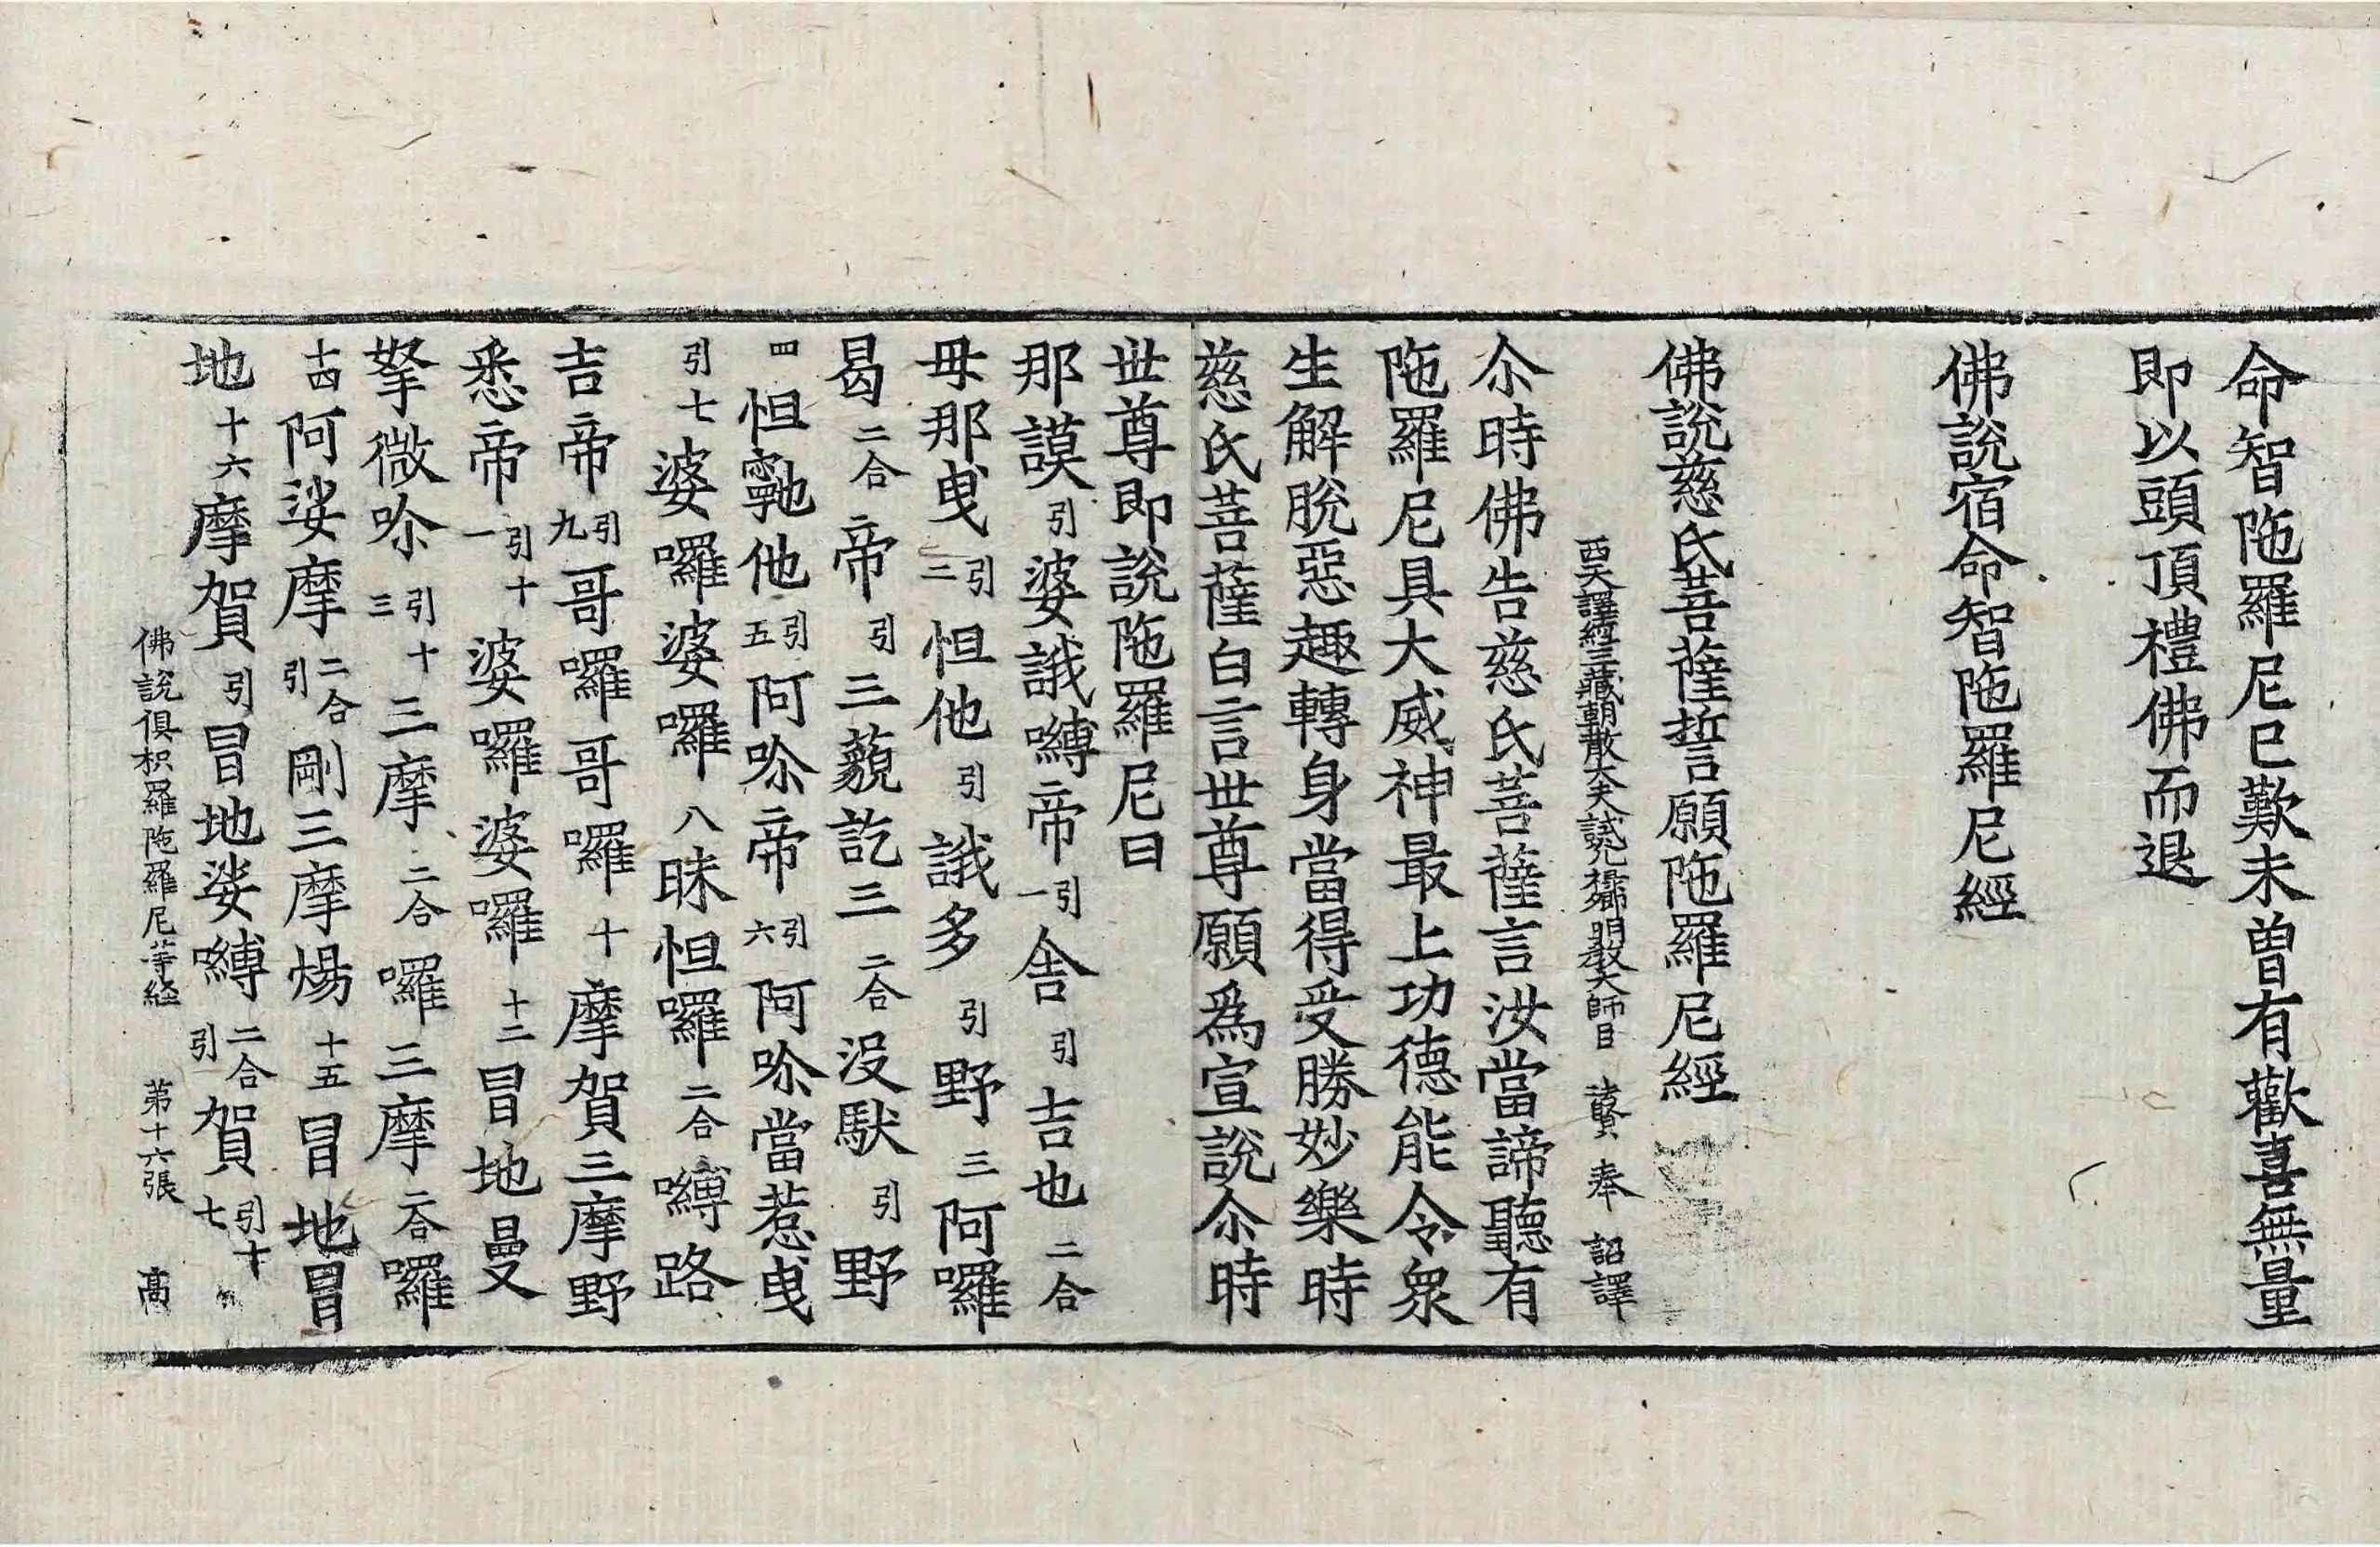 命智陁羅尼已歎未曾有歡喜無量
即以頭頂禮佛而退
佛說宿命智陁羅尼經
佛說慈氏菩薩誓言願陁羅尼經
西天譯經三藏朝散大夫試光祿卿明教大師臣 法賢 奉 詔譯
尒時佛告慈氏菩薩言汝當諦聽有
陁羅尼具大威神最上功德能令衆
生解脫惡趣轉身當得受勝妙樂時
慈氏菩薩白言世尊願爲宣說尒時
世尊即說陁羅尼曰
那謨引婆誐嚩帝引一舍引吉也二合
毋那曳引二怛他引誐多引野三阿囉
曷二合帝引三藐訖三二合沒馱引野
四怛𩕳他引五阿哛帝引六阿哛當惹曳
引七婆囉婆囉八昧怛囉二合嚩路
吉帝引九哥囉哥囉十摩賀三摩野
悉帝引十一婆囉婆囉十二冒地曼
拏微哛引十三三摩二合囉三摩二合囉
十四阿娑摩二合引剛三摩煬十五冒地冒
地十六摩賀引冒地娑嚩二合引賀引十七
佛說俱枳羅陁羅尼等経 第十六張 髙